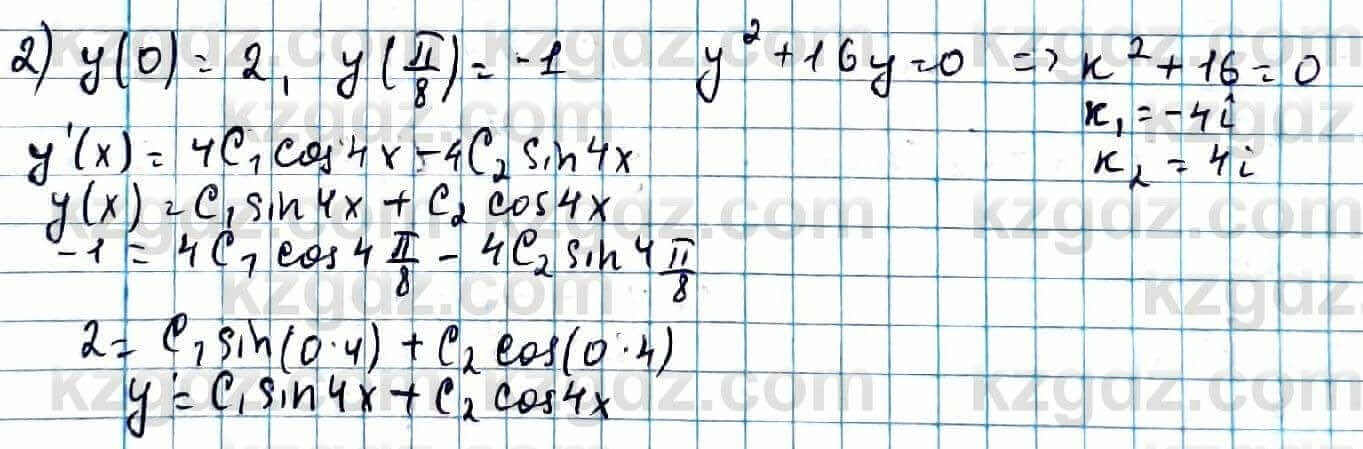 2) y(0) = 2, y(π/8) = -1 y² + 16y = 0 => к² + 16 = 0
к₁ = -4i
y'(x) = 4C₁cos4x - 4C₂ sin4x
к₂ = 4i
y(x) = C₁sin4x + C₂ cos4x
-1 = 4C₁ cos4 π/8 - 4C₂ sin4 π/8
2 = C₁ sin(0·4) + C₂ cos(0·4)
y = C₁sin4x + C₂ cos4x
kzgdz.com